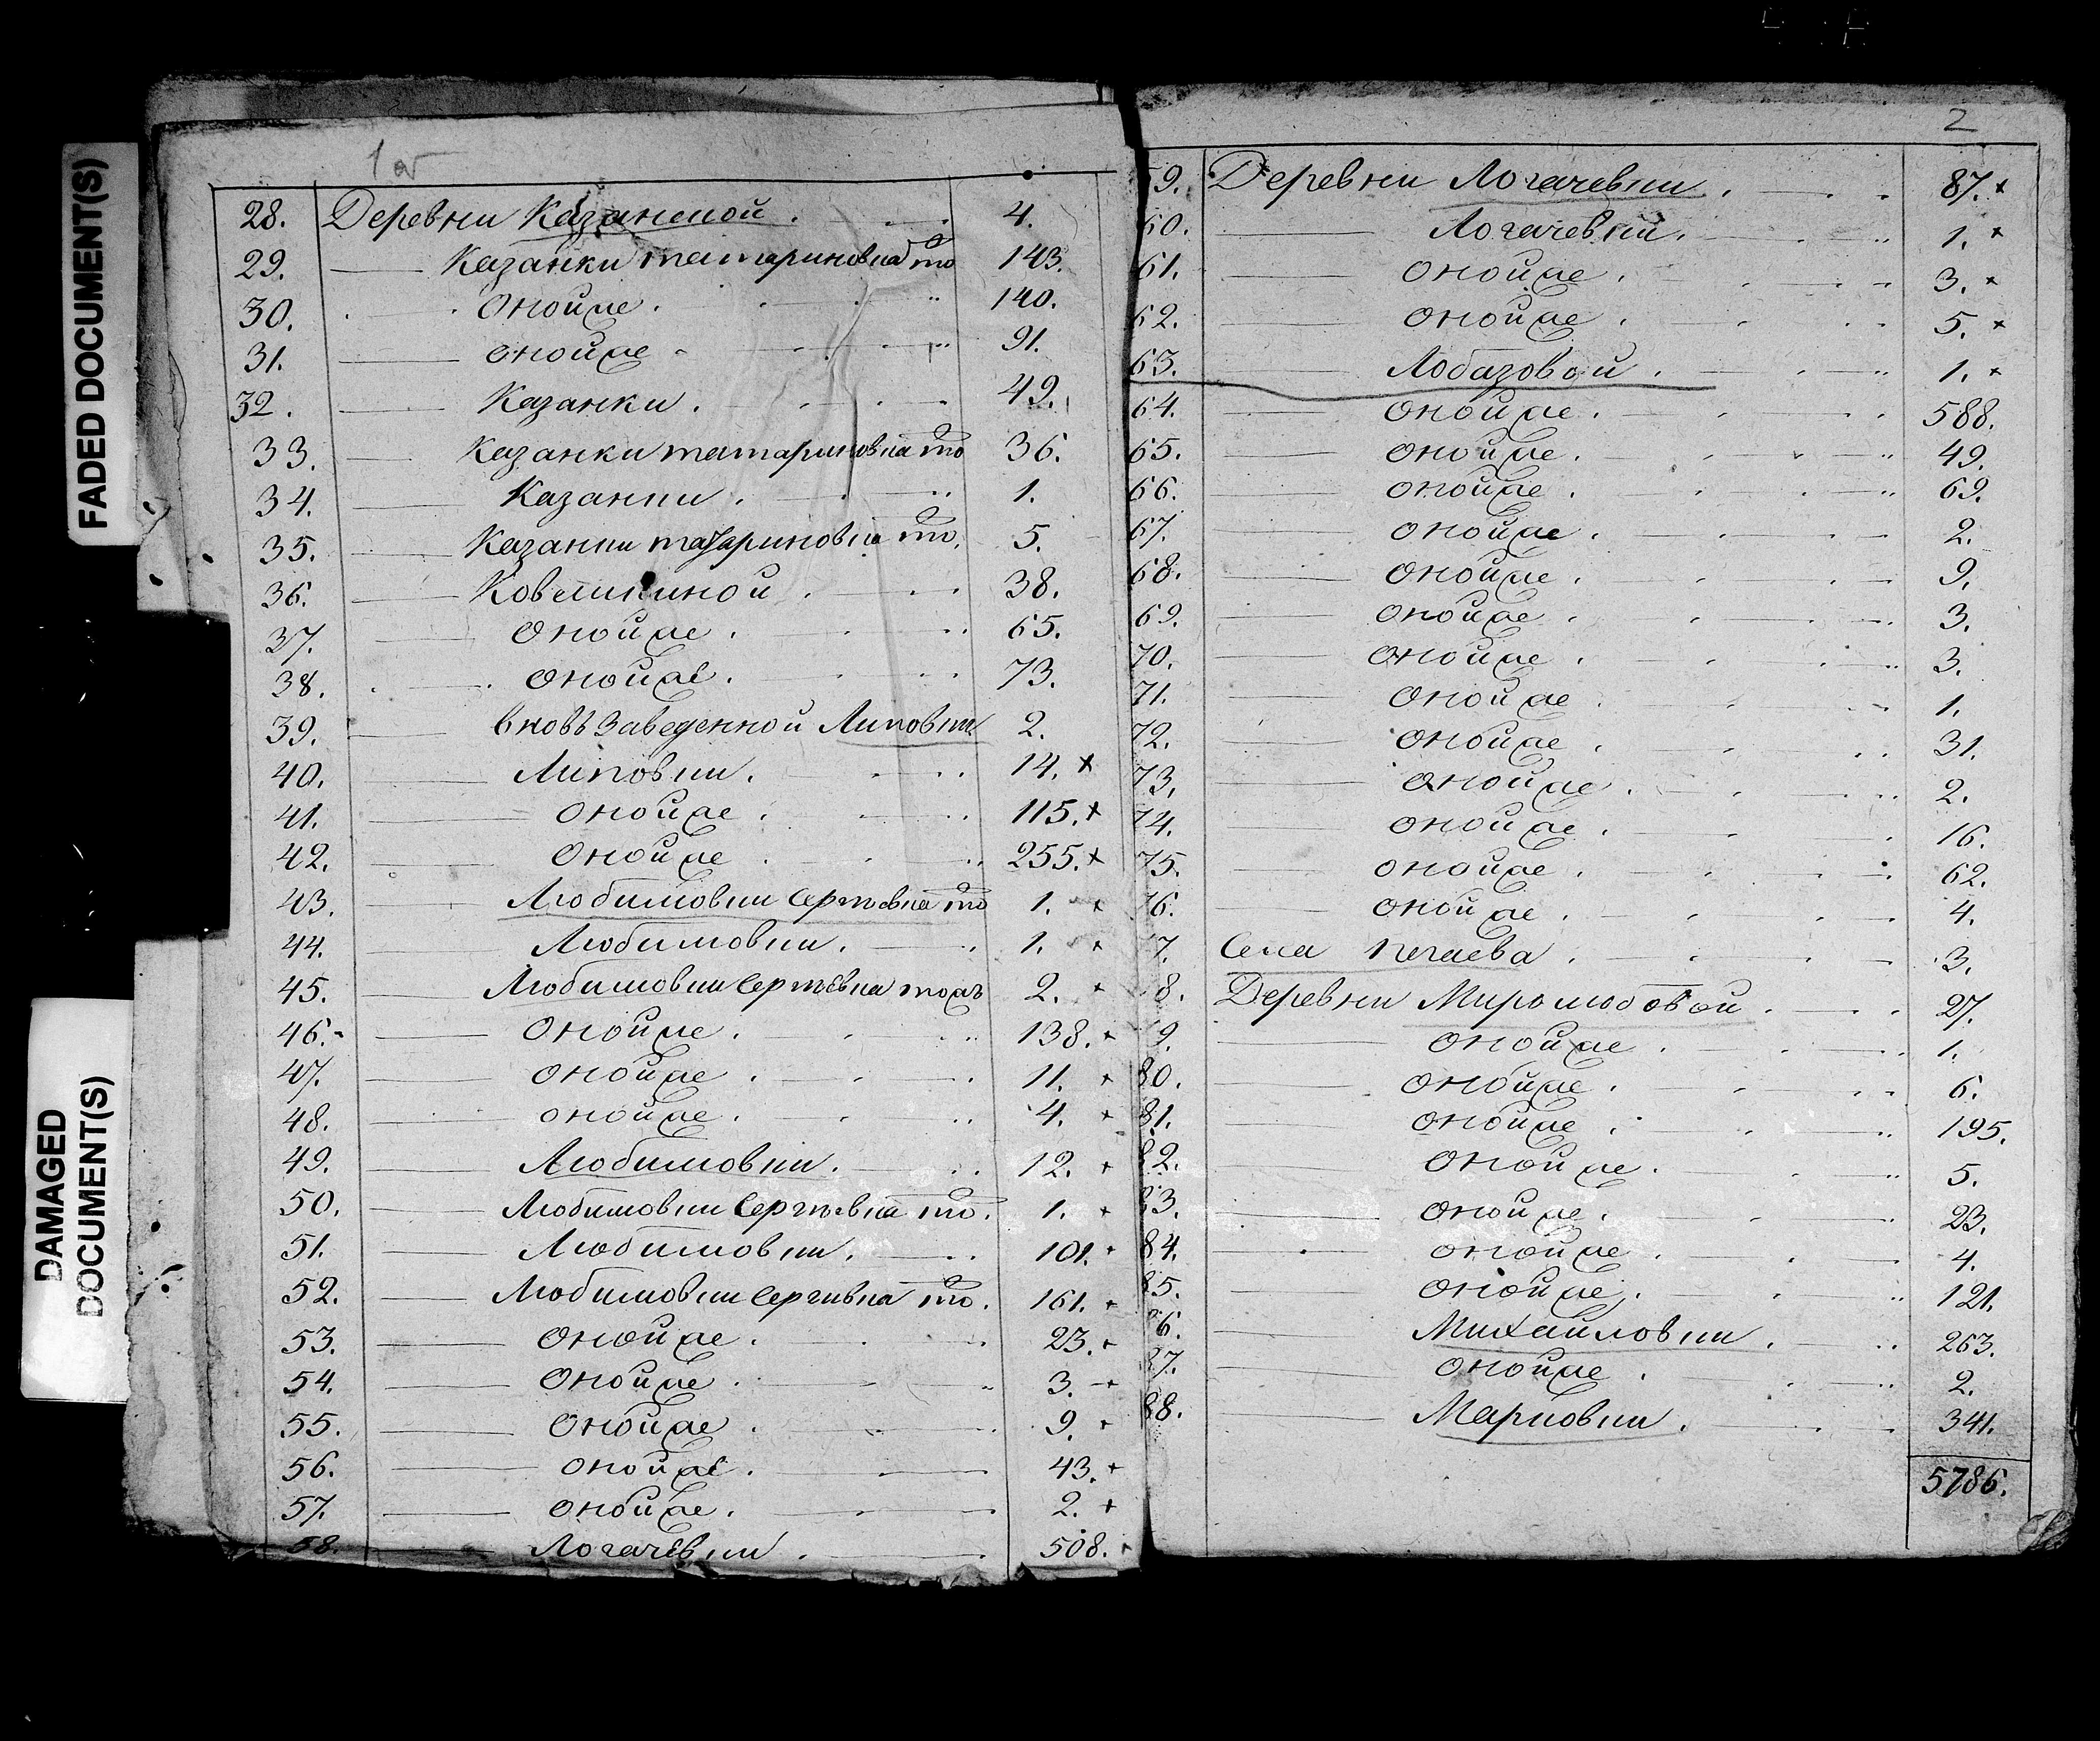 FADED DOCUMENT(S)
DAMAGED
DOCUMENT(S)
1об
28. Деревни Казанской 4.
29. Казанки татариновка то 143.
30. Оной же 140.
31. оной же 91.
32. Казанки 49.
33. Казанки татариновка то 36.
34. Казанки 1.
35. Казанки татариновка то. 5.
36. Ковешкиной 38.
37. Оной же 65.
38. оной же 73.
39. вновь Заведенной Липовки 2.
40. Липовки 14. +
41. оной же 115. +
42. Оной же 255. +
43. Любимовки Сергѣевка то 1. +
44. Любимовки 1. +
45. Любимовки Сергѣевка тожъ 2. +
46. Оной же 138. +
47. оной же 11. +
48. оной же 4. +
49. Любимовки 12. +
50. Любимовки Сергѣевка то. 1. +
51. Любимовки 101. +
52. Любимовки Сергиевка то. 161. +
53. оной же 23. +
54. Оной же 3. +
55. Оной же 9. +
56. оной же 43. +
57. оной же 2. +
58. Логачевки 508.
2
59. Деревни Логачевки 87. +
60. Логачевки 1. +
61. оной же 3. +
62. оной же 5. +
63. Лобазовой 1. +
64. оной же 588.
65. оной же 49.
66. оной же 69.
67. оной же 2.
68. оной же 9.
69. оной же 3.
70. оной же 3.
71. оной же 1.
72. оной же 31.
73. оной же 2.
74. оной же 16.
75. оной же 62.
76. оной же 4.
7. Села 3.
8. Деревни Миролюбовой 27.
9. оной же 1.
80. оной же 6.
81. оной же 195.
82. оной же 5.
83. оной же 23.
84. оной же 4.
85. оной же 121.
86. Михайловки 263.
87. оной же 2.
88. Марковки 341.
5786.